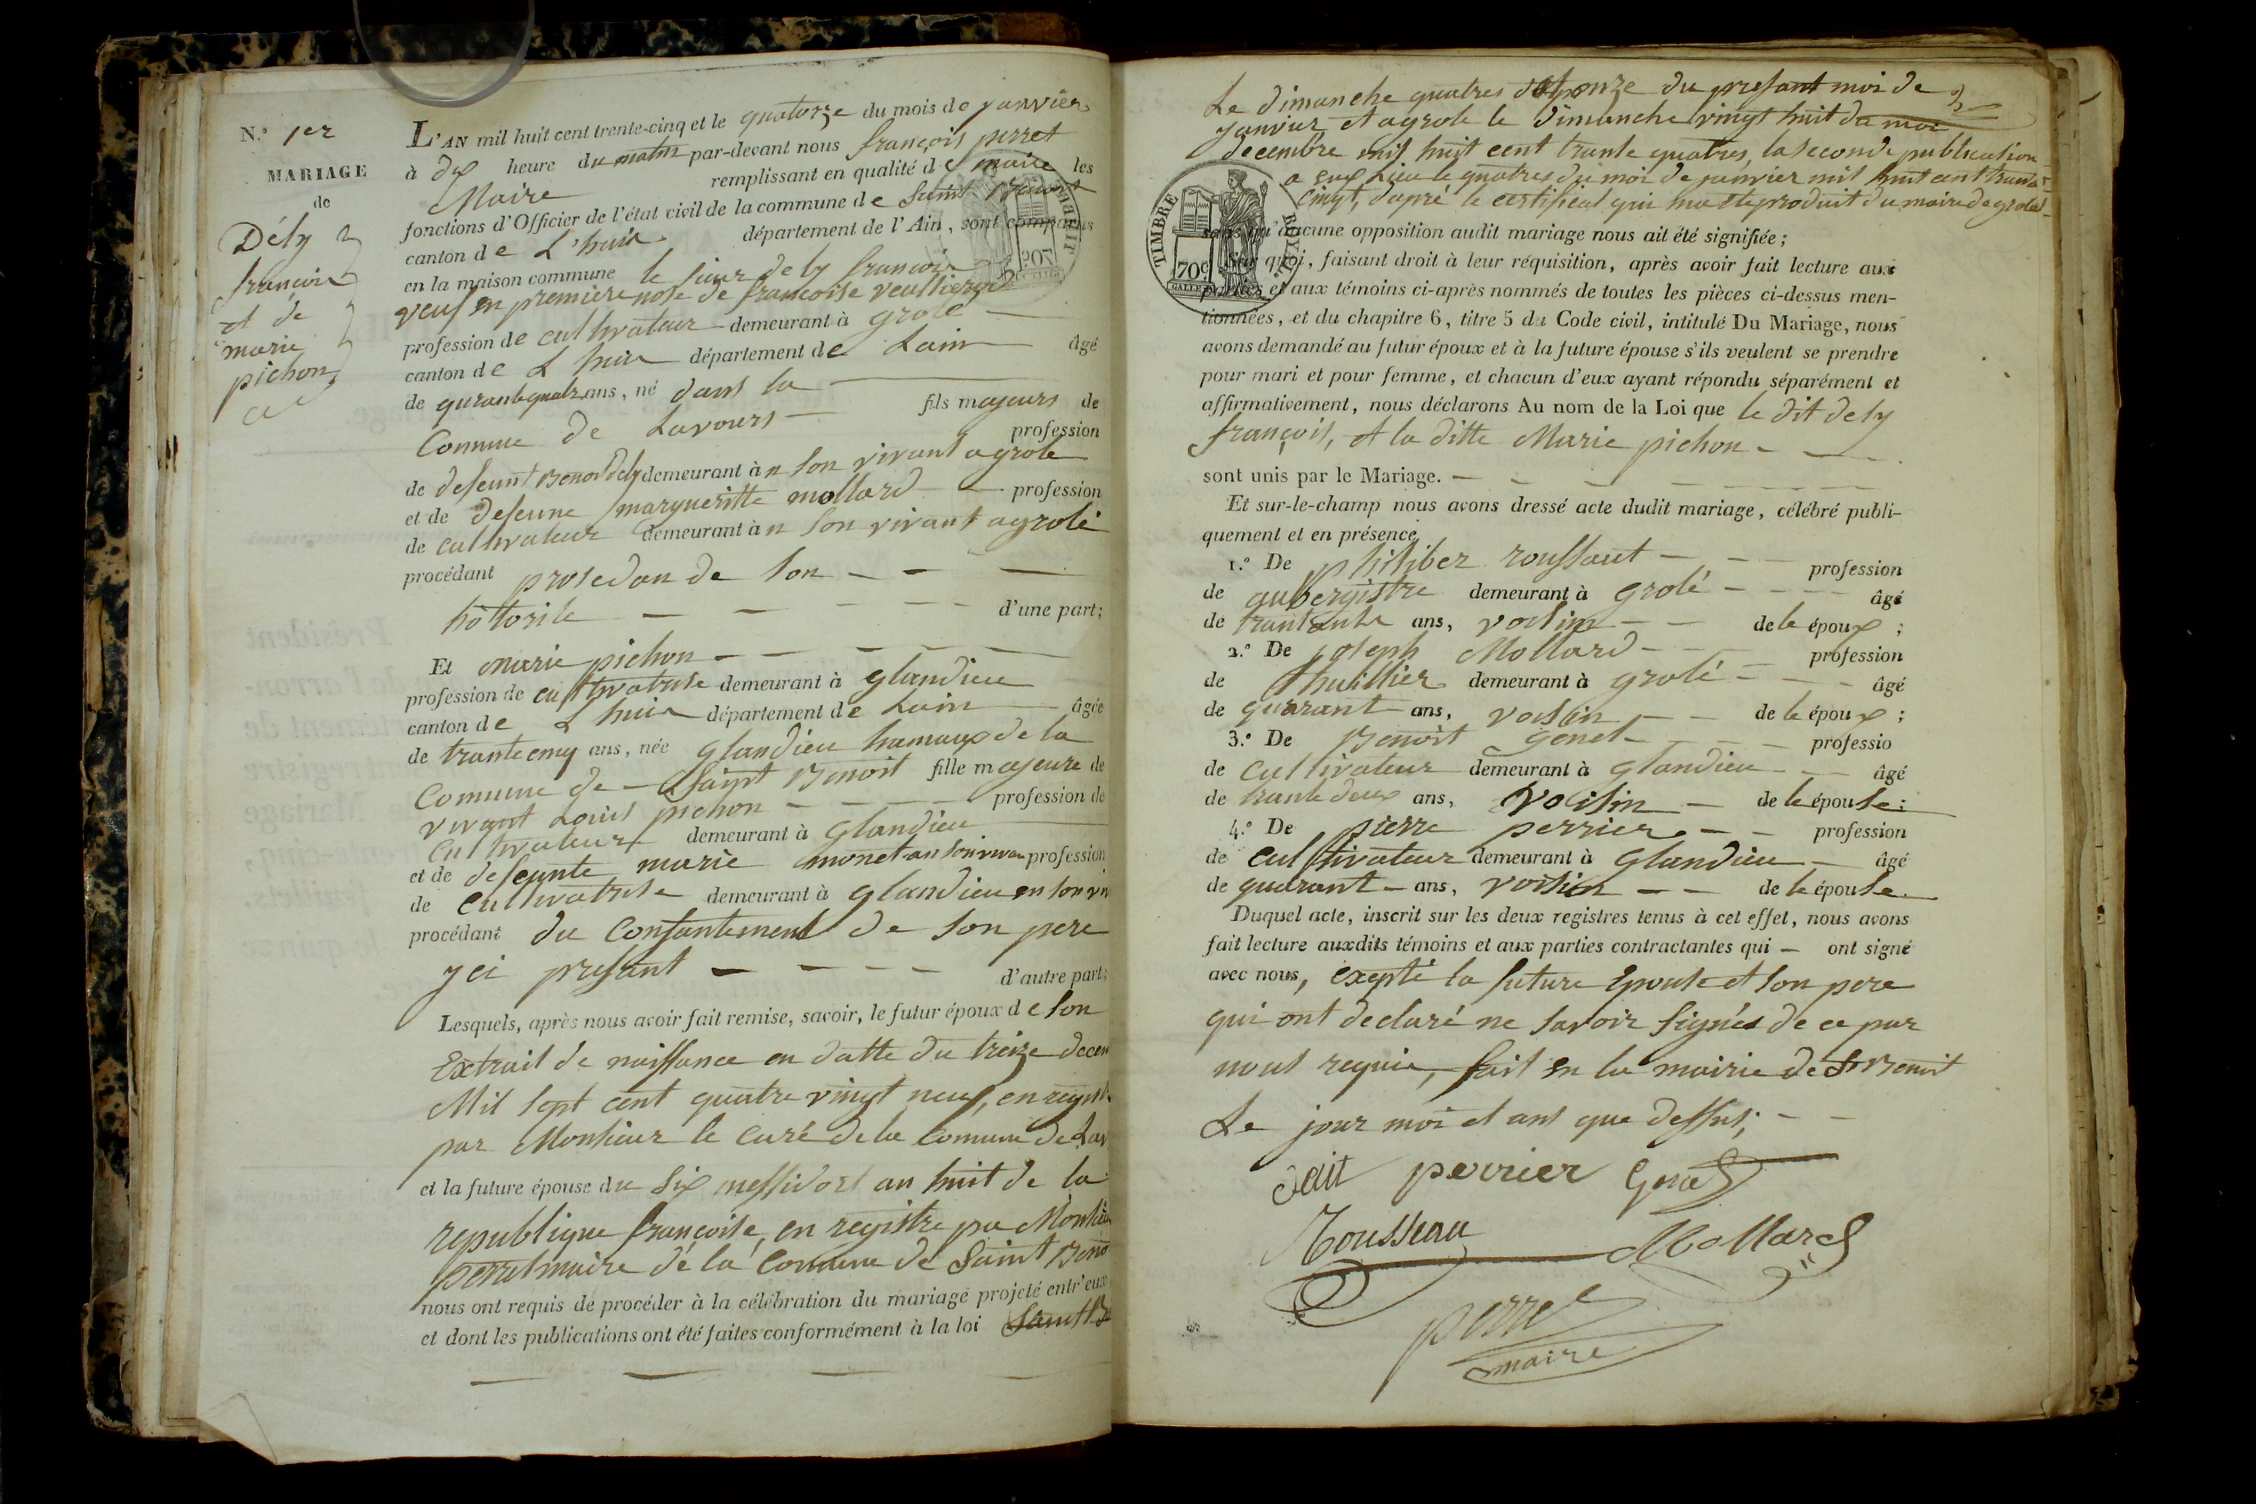 N.º 1er
MARIAGE
de
Dély
françois
et de
marie
pichon
L'AN mil huit cent trente-cinq et le quatorze du mois de janvier
à dix heure du matin par-devant nous françois perret
Maire remplissant en qualité de maire les
fonctions d'Officier de l'état civil de la commune de Saint Benoit
canton de L'huis département de l'Ain, sont comparus
en la maison commune le sieur dely francois
veuf en premiere nose de francoise
profession de cultivateur demeurant à grolé
canton de L huis département de Lain âgé
de qurante quatre ans, né dans la
Commune de Lavours fils majeurs de
profession
de defeunt Benoit Dely demeurant à n son vivant a grolé
et de defeune marguerittte mollard profession
de cultivateur demeurant à n son vivant a grolé
procédant prosedan de son
hôtorité d'une part;
Et marie pichon
profession de cultivatrise demeurant à glandieu
canton de L huis département de Lain âgée
de trante cinq ans, née glandieu hamaux de la
Comune de Saint Benoit fille majeure de
vivant Louis pichon profession de
Cultivateur demeurant à Glandieu
et de defeunte marie monet an son vivan profession
de Cultivatrise demeurant à glandieu en son viv
procédant du Consantement de son pere
yci presant d'autre part;
Lesquels, après nous avoir fait remise, savoir, le futur époux de son
Extrait de naissance en datte du treize decem
Mil sept cent quatre vingt neuf, en regist
par Monsieur le Curé de la Comune de Lav
et la future épouse du six messidort an huit de la
republique francoise, en registre par Monsieu
perret maire dé la Comune de Saint Beno
nous ont requis de procéder à la célébration du mariage projeté entr'eux
et dont les publications ont été faites conformément à la loi Saint Be
Le dimanche quatres du presant moi de
janvier et agrolé le dimanche vingt huit du moi
decembre mil huit cent trante quatres, la seconde publication
a eux Lieu le quatres du moi de janvier mil huit cent trante
Cinqt, dapré le certificat qui ma ete produit du maire de grolé
sans qu'aucune opposition audit mariage nous ait été signifiée;
TIMBRE ROYAL
70c
Sur quoi, faisant droit à leur réquisition, après avoir fait lecture aux
parties et aux témoins ci-après nommés de toutes les pièces ci-dessus men-
tionnées, et du chapitre 6, titre 5 du Code civil, intitulé Du Mariage, nous
avons demandé au futur époux et à la future épouse s'ils veulent se prendre
pour mari et pour femme, et chacun d'eux ayant répondu séparément et
affirmativement, nous déclarons Au nom de la Loi que le dit dely
françois, et la ditte Marie pichon
sont unis par le Mariage.
Et sur-le-champ nous avons dressé acte dudit mariage, célébré publi-
quement et en présence
1.º De philiber roussaut profession
de aubergistre demeurant à grolé âgé
de ans, voisin de le époux;
2.º De joseph Mollard profession
de thuillier demeurant à grolé âgé
de quarant ans, voisin de le époux;
3.º De Benoit genet professio
de Cultivateur demeurant à Glandieu âgé
de trante deux ans, voisin de le épouse;
4.º De pierre perrier profession
de Cultivateur demeurant à Glandieu âgé
de quarant ans, voisin de le épouse
Duquel acte, inscrit sur les deux registres tenus à cet effet, nous avons
fait lecture auxdits témoins et aux parties contractantes qui ont signé
avec nous, exepté la future Epouse et son pere
qui ont declaré ne savoir signés de ce par
nous requis, fait en la mairie de St Benoit
Le jour moi et ans que dessus;
perrier Genet
Rousseau Mollard
perret
maire